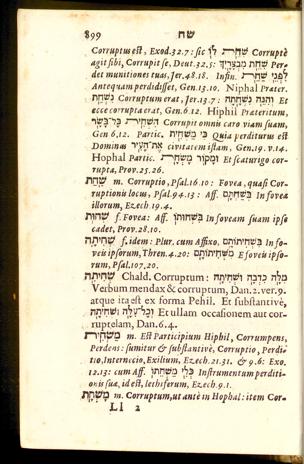 899 שח
Corruptus est, Exod.32.7: sic שִׁחֵת לוֹ Corruptè
agit sibi, Corrupit se, Deut.32.5: שִׁחֵת מִבְצָרֶיךָ Per-
det munitiones tuas, Jer.48.18. Infin. שַׁחֵת לִפְנֵי
Antequam perdidisset, Gen.13.10. Niphal Præter.
נִשְׁחַת Corruptum erat, Jer.13.7: וְהִנֵּה נִשְׁחָתָה Et
ecce corrupta erat, Gen.6.12. Hiphil Præteritum,
הִשְׁחִית כָּל־בָּשָׂר Corrupit omnis caro viam suam,
Gen 6.12. Partic. כִּי מַשְׁחִית Quia perditurus est
Dominus אֶת־הָעִיר civitatem istam, Gen.19.v.14.
Hophal Partic. וּמָקוֹר מָשְׁחָת Et scaturigo cor-
rupta, Prov.25.26.
שַׁחַת m. Corruptio, Psal.16.10: Fovea, quasi Cor-
ruptionis locus, Psal.94.13: Aff. בְּשַׁחְתָּם In fovea
illorum, Ezech.19.4.
שְׁחוּת f. Fovea: Aff. בִּשְׁחוּתוֹ In foveam suam ipse
cadet, Prov.28.10.
שְׁחִיתָה f. idem: Plur. cum Affixo. בִּשְׁחִיתוֹתָם In fo-
veis ipsorum, Thren.4.20: מִשְּׁחִיתוֹתָם E foveis ipso-
rum, Psal.107.20.
שְׁחִיתָה Chald. Corruptum: מִלָּה כִדְבָה וּשְׁחִיתָה
Verbum mendax & corruptum, Dan.2.ver.9.
atque ita est ex forma Pehil. Et substantivè,
וְכָל־עִלָּה וּשְׁחִיתָה Et ullam occasionem aut cor-
ruptelam, Dan.6.4.
מַשְׁחִית m. Est Participium Hiphil, Corrumpens,
Perdens: sumitur & substantivè, Corruptio, Perdi-
tio, Internecio, Exilium, Ezech.21.31. & 9.6: Exo.
12.13: cum Aff. כְּלִי מַשְׁחֵתוֹ Instrumentum perditi-
onis suæ, id est, lethiferum, Ezech.9.1.
מָשְׁחָת m. Corruptum, ut antè in Hophal: item Cor-
Ll 2